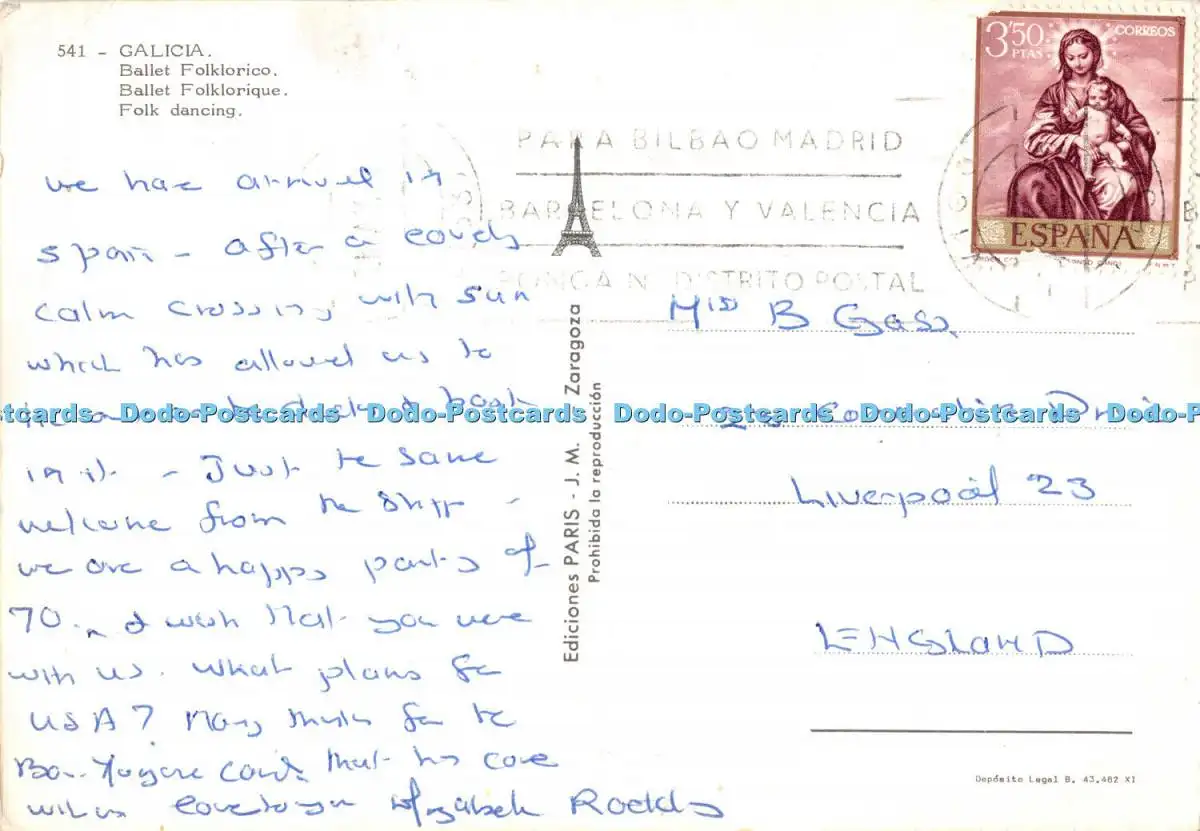 541 - GALICIA.
Ballet Folklorico.
Ballet Folklorique.
Folk dancing.
3'50 PTAS
CORREOS
ESPAÑA
PARA BILBAO MADRID
BARCELONA Y VALENCIA
PONGA Nº DISTRITO POSTAL
we have arrived in
Spain - after a lovely
calm crossing with sun
which has allowed us to
in it - Just the same
welcome from the ship -
we are a happy party of
70. I wish that you were
with us. What plans for
USA? Many thanks for the
card that has come
with us love to you Elizabeth Roddy
Ediciones PARIS - J. M. Zaragoza
Prohibida la reproducción
Miss B Gass
Drive
Liverpool 23
ENGLAND
Depósito Legal B. 43.482 XI
Dodo-Postcards Dodo-Postcards Dodo-Postcards Dodo-Postcards